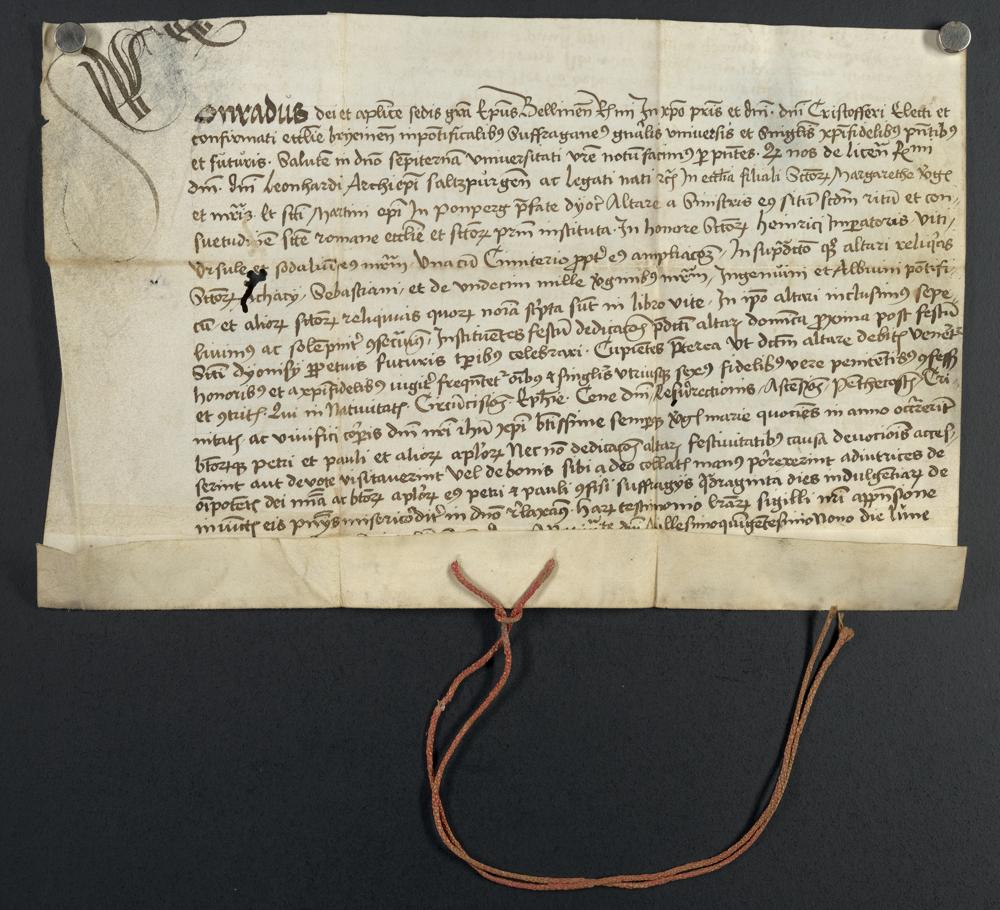 Nos Conradus dei et aplice sedis grã Epũs Bellineñ Rmi In xpo pris et dñi dñi Cristofferi Electi et
confirmati ecclie brixineñ inpontificalibus Suffraganeus gñalis vniuersis et Singlis xpifidelibus pñtibus
et futuris. Salutẽ in dño sempiternã vniuersitati vr̃e notũ facimus per pñtes. Qz nos de licen̄ Rmi
dñi dñi leonhardi Archiepi saltzpurgeñ ac legati nati In ecclia filiali Sctorꝝ Margarethe virgĩs
et mr̃is et scti Martini epi In Ponperg p̃fate dyoc̃ Altare a Sinistris eius situ scdm ritũ et con-
suetudinẽ scte romane ecclie et sctorꝝ prm instituta. In honore Sctorꝝ heinrici Imperatoris viti,
vrsule et sodaliũ eius mr̃um. vna cũ Cimiterio propter eius ampliacõem. In suprãdicto qz altari reliquias
Sctorꝝ Achacy, Sebastiani, et de vndecim mille virginibus mr̃um, Ingenuini et Albuini põtifi-
cũ et aliorꝝ sctorꝝ reliquiis quorꝝ noĩa scripta sũt in libro vite. In ipo altari inclusimus sepe-
liuimus ac solẽpniter cõsecrauimus. Instituẽtes festũ dedicacõis p̃dicti altaris dominica proxima post festũ
Scti dyonisy perpetuis futuris tp̃ibus celebrari. Cupientes p̃terea vt dictm altare debitis venerẽt
honoribus et a xpifidelibus iugiter frequẽtetur oĩbus et singlis vtriusqz sexus fidelibus vere penitẽtibus cõfessis
et cõtritis. Qui in Natiuitatis. Circũcisiõis. Eph̃ie. Cene dñi Resurrectionis, Ascẽsiõis Penthecostes Tri-
nitatis ac viuifici corporis dñi nr̃i ihũ xpi btissime semperqz virgis marie quociẽs in anno occrrerit
btorꝝqz petri et pauli et aliorꝝ aplorꝝ Nec nõ dedicacõis altaris festiuitatibus causa deuocionis acces-
serint aut deuote visitauerint vel de bonis sibi a deo collatis manus porrexerint adiutrices de
oĩpotẽtis dei mĩa ac btorꝝ aplorꝝ eius petri et pauli cõfisi suffragys Quadraginta dies indulgẽtiarꝝ de
iniũctis eis pñijs misericorditer in dño relaxamus harꝝ testimonio lr̃arꝝ sigilli nr̃i appẽsione
millesimoquingentesimo Nono die lune